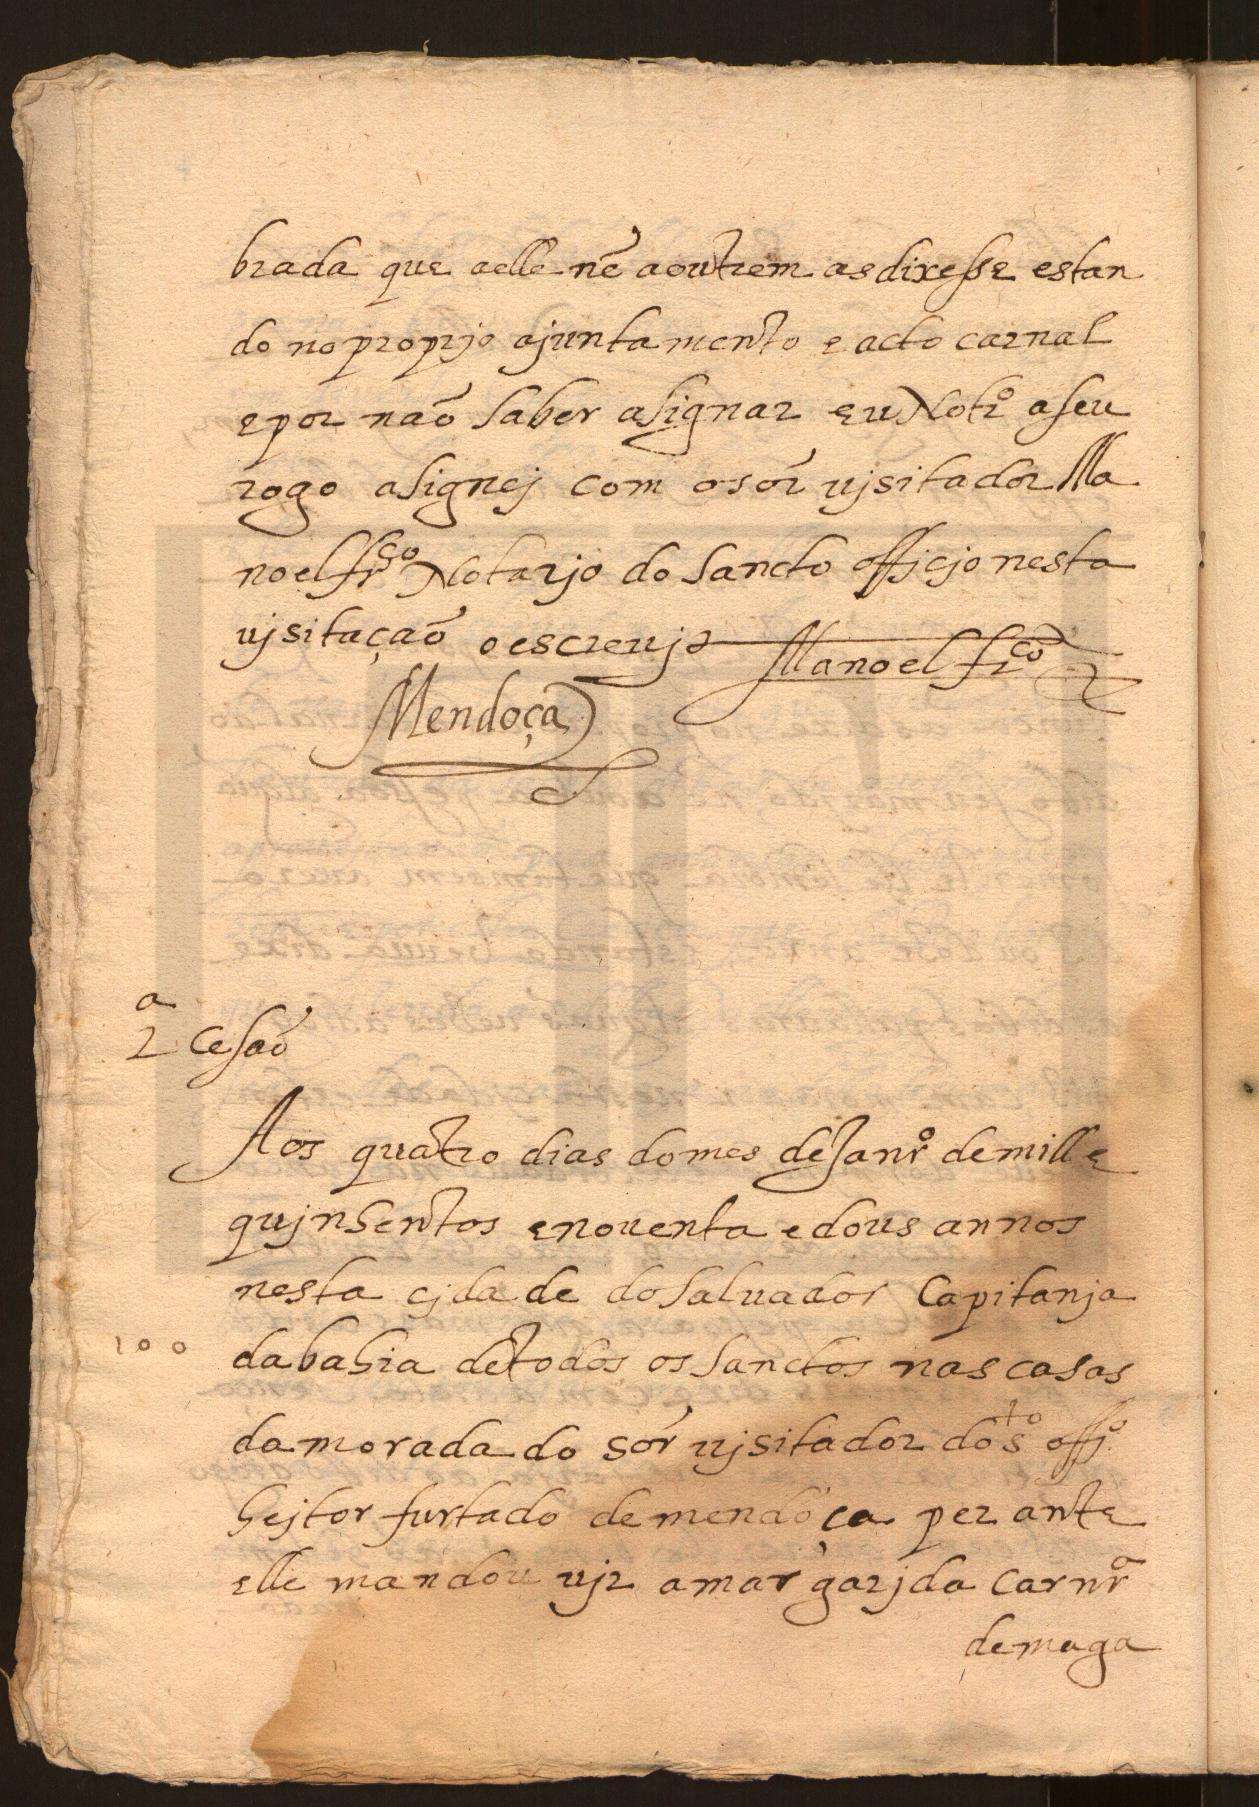 brada que aelle nẽ aoutrem as dixesse estan
do no proprjo ajuntamento e acto carnal
e por naõ saber asignar eu Notrº a seu
rogo asignej com o sõr vjsitador Ma
noel frcº Notarjo do sancto officjo nesta
vjsitaçaõ o escrevj Manoel frcº
Mendoça
2ª Cessaõ
Aos quatro dias do mes de Janrº de mill e
qujnhentos e noventa e dous annos
nesta cjdade do salvador Capitanja
100
da bahia de todos os sanctos nas casas
da morada do sõr vjsitador do stº offjº
hejtor furtado de mendoça perante
elle mandou vjr a margarjda Carnrª
de maga